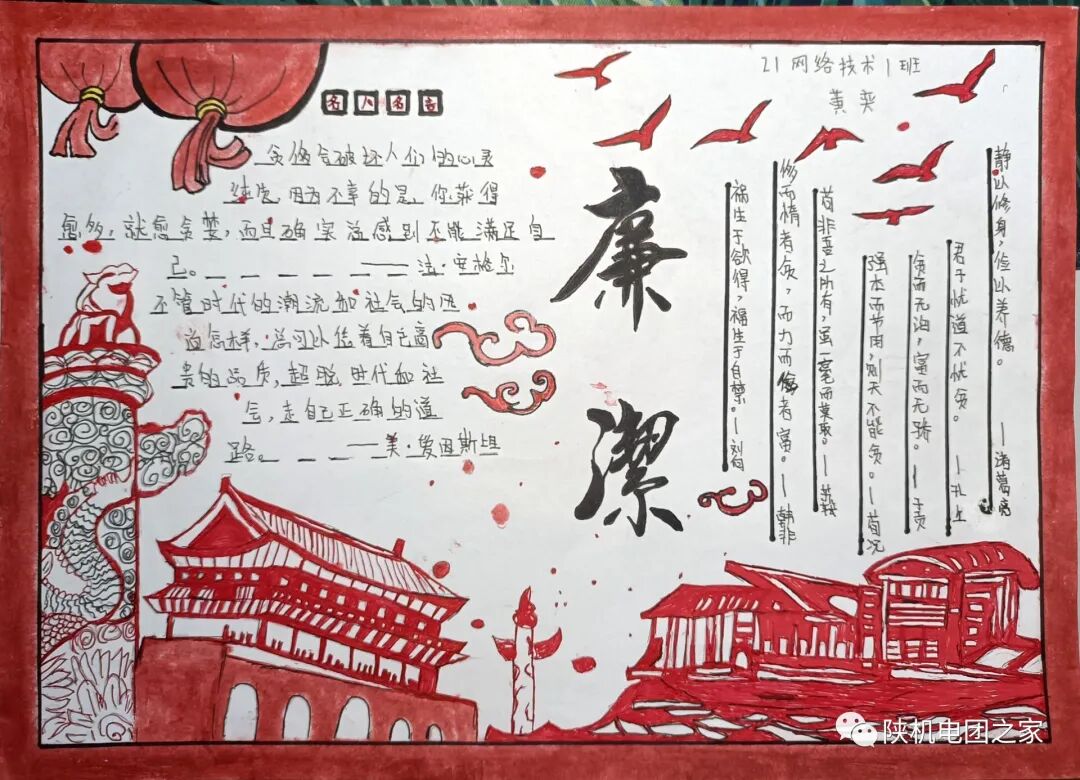 名人名言
21网络技术1班
黄奕
贪的会破坏人们的心灵
纯洁,因为不幸的是,你获得
愈多,就愈贪婪,而且确实总感到不能满足自
己。——法·安格尔
不管时代的潮流和社会的风
尚怎样,总可以凭着自己高
贵的品质,超脱时代和社
会,走自己正确的道
路。——美·爱因斯坦
廉潔
静以修身,俭以养德。—诸葛亮
君子忧道不忧贫。—孔丘
贫而无谄,富而无骄。—子贡
强本而节用,则天不能贫。—荀况
苟非吾之所有,虽一毫而莫取。—苏轼
侈而惰者贫,而力而俭者富。—韩非
福生于欲得,福生于自禁。—刘向
陕机电团之家